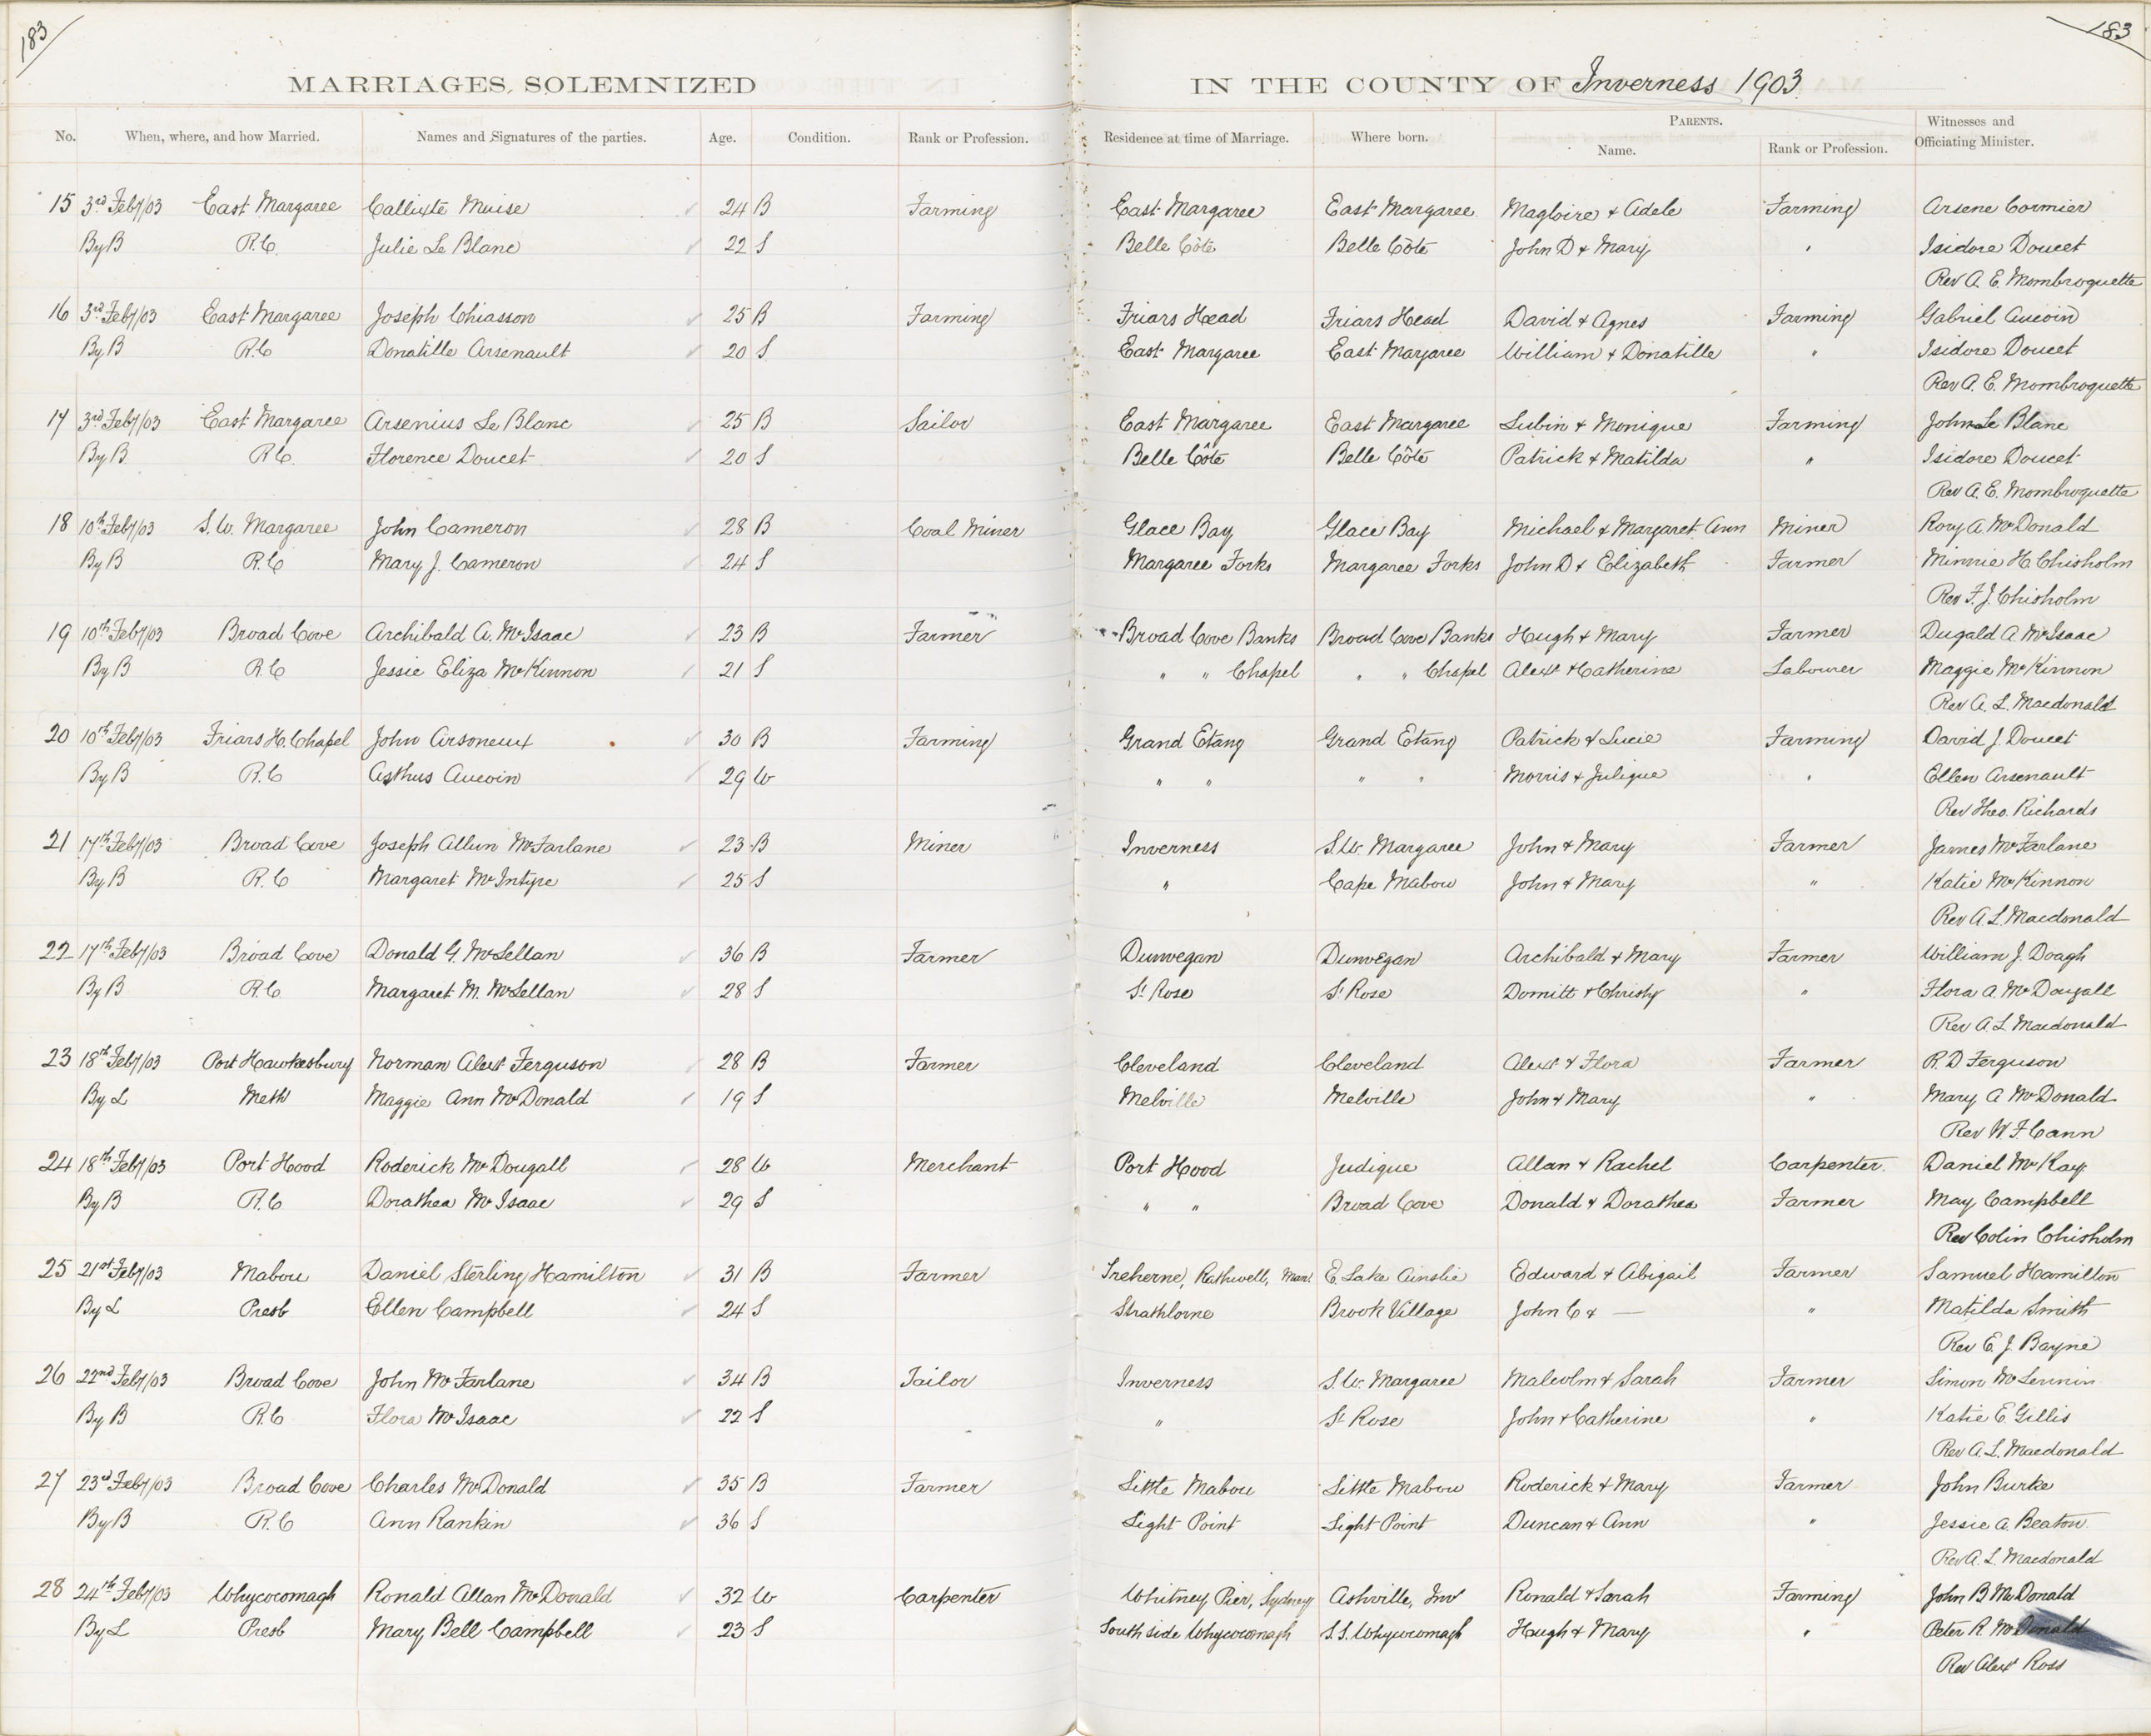 183
183
MARRIAGES SOLEMNIZED IN THE COUNTY OF Inverness 1903
No. When, where, and how Married. Names and Signatures of the parties. Age. Condition. Rank or Profession. Residence at time of Marriage. Where born. PARENTS. Name. Rank or Profession. Witnesses and Officiating Minister.
15 3rd Feby/03 East Margaree Callixte Muise 24 B Farming East Margaree East Margaree Magloire & Adele Farming Arsene Cormier
By B R.C. Julie Le Blanc 22 S Belle Côte Belle Côte John D & Mary " Isidore Doucet
Rev A. E. Mombroquette
16 3rd Feby/03 East Margaree Joseph Chiasson 25 B Farming Friars Head Friars Head David & Agnes Farming Gabriel Aucoin
By B R.C Donatille Arsenault 20 S East Margaree East Margaree William & Donatille " Isidore Doucet
Rev A. E. Mombroquette
17 3rd Feby/03 East Margaree Arsenius Le Blanc 25 B Sailor East Margaree East Margaree Lubin & Monique Farming John Le Blanc
By B. R.C. Florence Doucet 20 S Belle Côte Belle Côte Patrick & Matilda " Isidore Doucet
Rev A. E. Mombroquette
18 10th Feby/03 S.W. Margaree John Cameron 28 B Coal Miner Glace Bay Glace Bay Michael & Margaret Ann Miner Rory A. McDonald
By B R.C Mary J. Cameron 24 S Margaree Forks Margaree Forks John D & Elizabeth Farmer Minnie H. Chisholm
Rev F. J. Chisholm
19 10th Feby/03 Broad Cove Archibald A. McIsaac 23 B Farmer Broad Cove Banks Broad Cove Banks Hugh & Mary Farmer Dugald A McIsaac
By B R.C Jessie Eliza McKinnon 21 S " " Chapel " " Chapel Alext & Catherine Labourer Maggie McKinnon
Rev A. L. Macdonald
20 10th Feby/03 Friars H. Chapel John Arsoneux 30 B Farming Grand Etang Grand Etang Patrick & Lucie Farming David J. Doucet
By B R.C Asthus Aucoin 29 W " " " " Morris & Julique " Ellen Arsenault
Rev Theo. Richards
21 17th Feby/03 Broad Cove Joseph Allan McFarlane 23 B Miner Inverness S.W. Margaree John & Mary Farmer James McFarlane
By B R.C Margaret McIntyre 25 S " Cape Mabou John & Mary " Katie McKinnon
Rev A. L. Macdonald
22 17th Feby/03 Broad Cove Donald G. McLellan 36 B Farmer Dunvegan Dunvegan Archibald & Mary Farmer William J. Doagh
By B R.C. Margaret M. McLellan 28 S St Rose St Rose Domitt & Christy " Flora A. McDougall
Rev A L Macdonald
23 18th Feby/03 Port Hawkesbury Norman Alext Ferguson 28 B Farmer Cleveland Cleveland Alext & Flora Farmer R. D Ferguson
By L Meth Maggie Ann McDonald 19 S Melville Melville John & Mary " Mary A McDonald
Rev W. F. Cann
24 18th Feby/03 Port Hood Roderick McDougall 28 W Merchant Port Hood Judique Allan & Rachel Carpenter. Daniel McKay
By B R.C Dorathea McIsaac 29 S " " Broad Cove Donald & Dorathea Farmer May Campbell
Rev Colin Chisholm
25 21st Feby/03 Mabou Daniel Sterling Hamilton 31 B Farmer Treherne, Rathwell, Man. E. Lake Ainslie Edward & Abigail Farmer Samuel Hamilton
By L Presb Ellen Campbell 24 S Strathlorne Brook Village John C & — " Matilda Smith
Rev E. J. Bayne
26 22nd Feby/03 Broad Cove John McFarlane 34 B Tailor Inverness S.W. Margaree Malcolm & Sarah Farmer Simon McLennin
By B R.C Flora McIsaac 22 S " St Rose John & Catherine " Katie E. Gillis
Rev A. L. Macdonald
27 23rd Feby/03 Broad Cove Charles McDonald 35 B Farmer Little Mabou Little Mabou Roderick & Mary Farmer John Burke
By B R.C Ann Rankin 36 S Sight Point Sight Point Duncan & Ann " Jessie A. Beaton
Rev A. L. Macdonald
28 24th Feby/03 Whycocomagh Ronald Allan McDonald 32 W Carpenter Whitney Pier, Sydney Ashville, Inv Ronald & Sarah Farming John B. McDonald
By L Presb Mary Bell Campbell 23 S South side Whycocomagh S.S. Whycocomagh Hugh & Mary " Peter R. McDonald
Rev Alext Ross